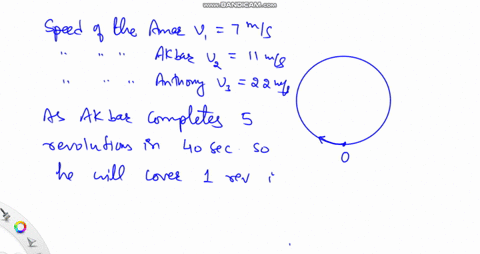 www.BANDICAM.com
Speed of the Amar V₁ = 7 m/s
" " " Akbar V₂ = 11 m/s
" " " Anthony V₃ = 22 m/s
As Akbar completes 5
revolution in 40 sec so
he will cover 1 rev i
O